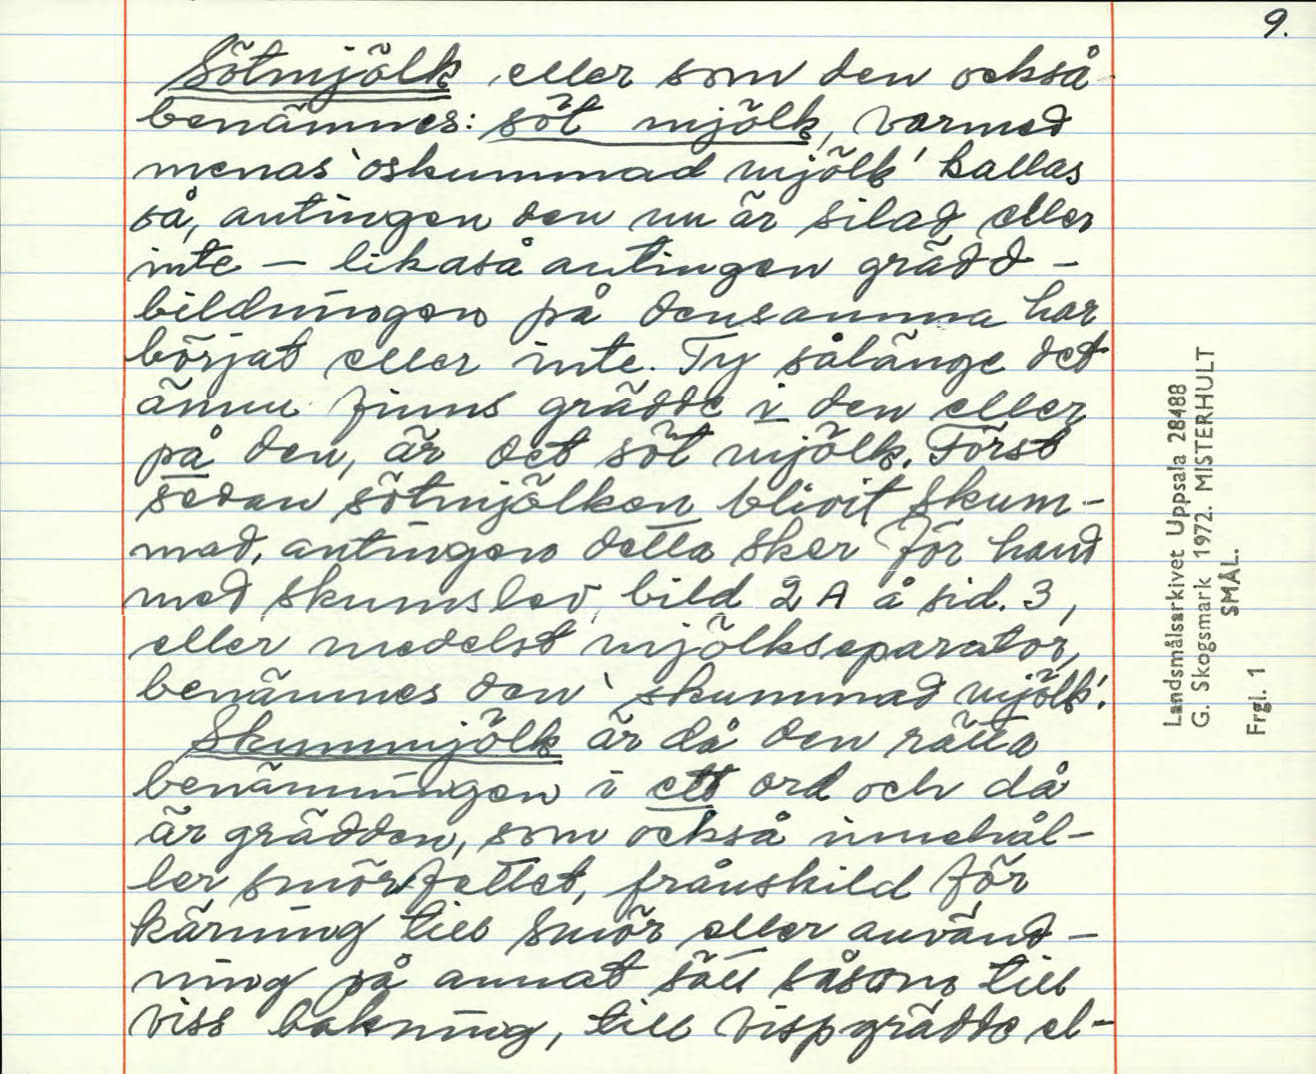 9.
Sötmjölk, eller som den också
benämnes: söt mjölk, varmed
menas 'oskummad mjölk' kallas
så, antingen den nu är silad eller
inte – likaså antingen grädd-
bildningen på densamma har
börjat eller inte. Ty sålänge det
ännu finns grädde i den eller
på den, är det söt mjölk. Först
sedan sötmjölken blivit skum-
mad, antingen detta sker för hand
med skumslev, bild 2 A å sid. 3,
eller medelst mjölkseparator,
benämnes den 'skummad mjölk'.
Skummjölk är då den rätta
benämningen i ett ord och då
är grädden, som också innehål-
ler smörfettet, frånskild för
kärning till smör eller använd-
ning på annat sätt såsom till
viss bakning, till vispgrädde el-
Landsmålsarkivet Uppsala 28488
G. Skogsmark 1972. MISTERHULT
SMÅL.
Frgl. 1